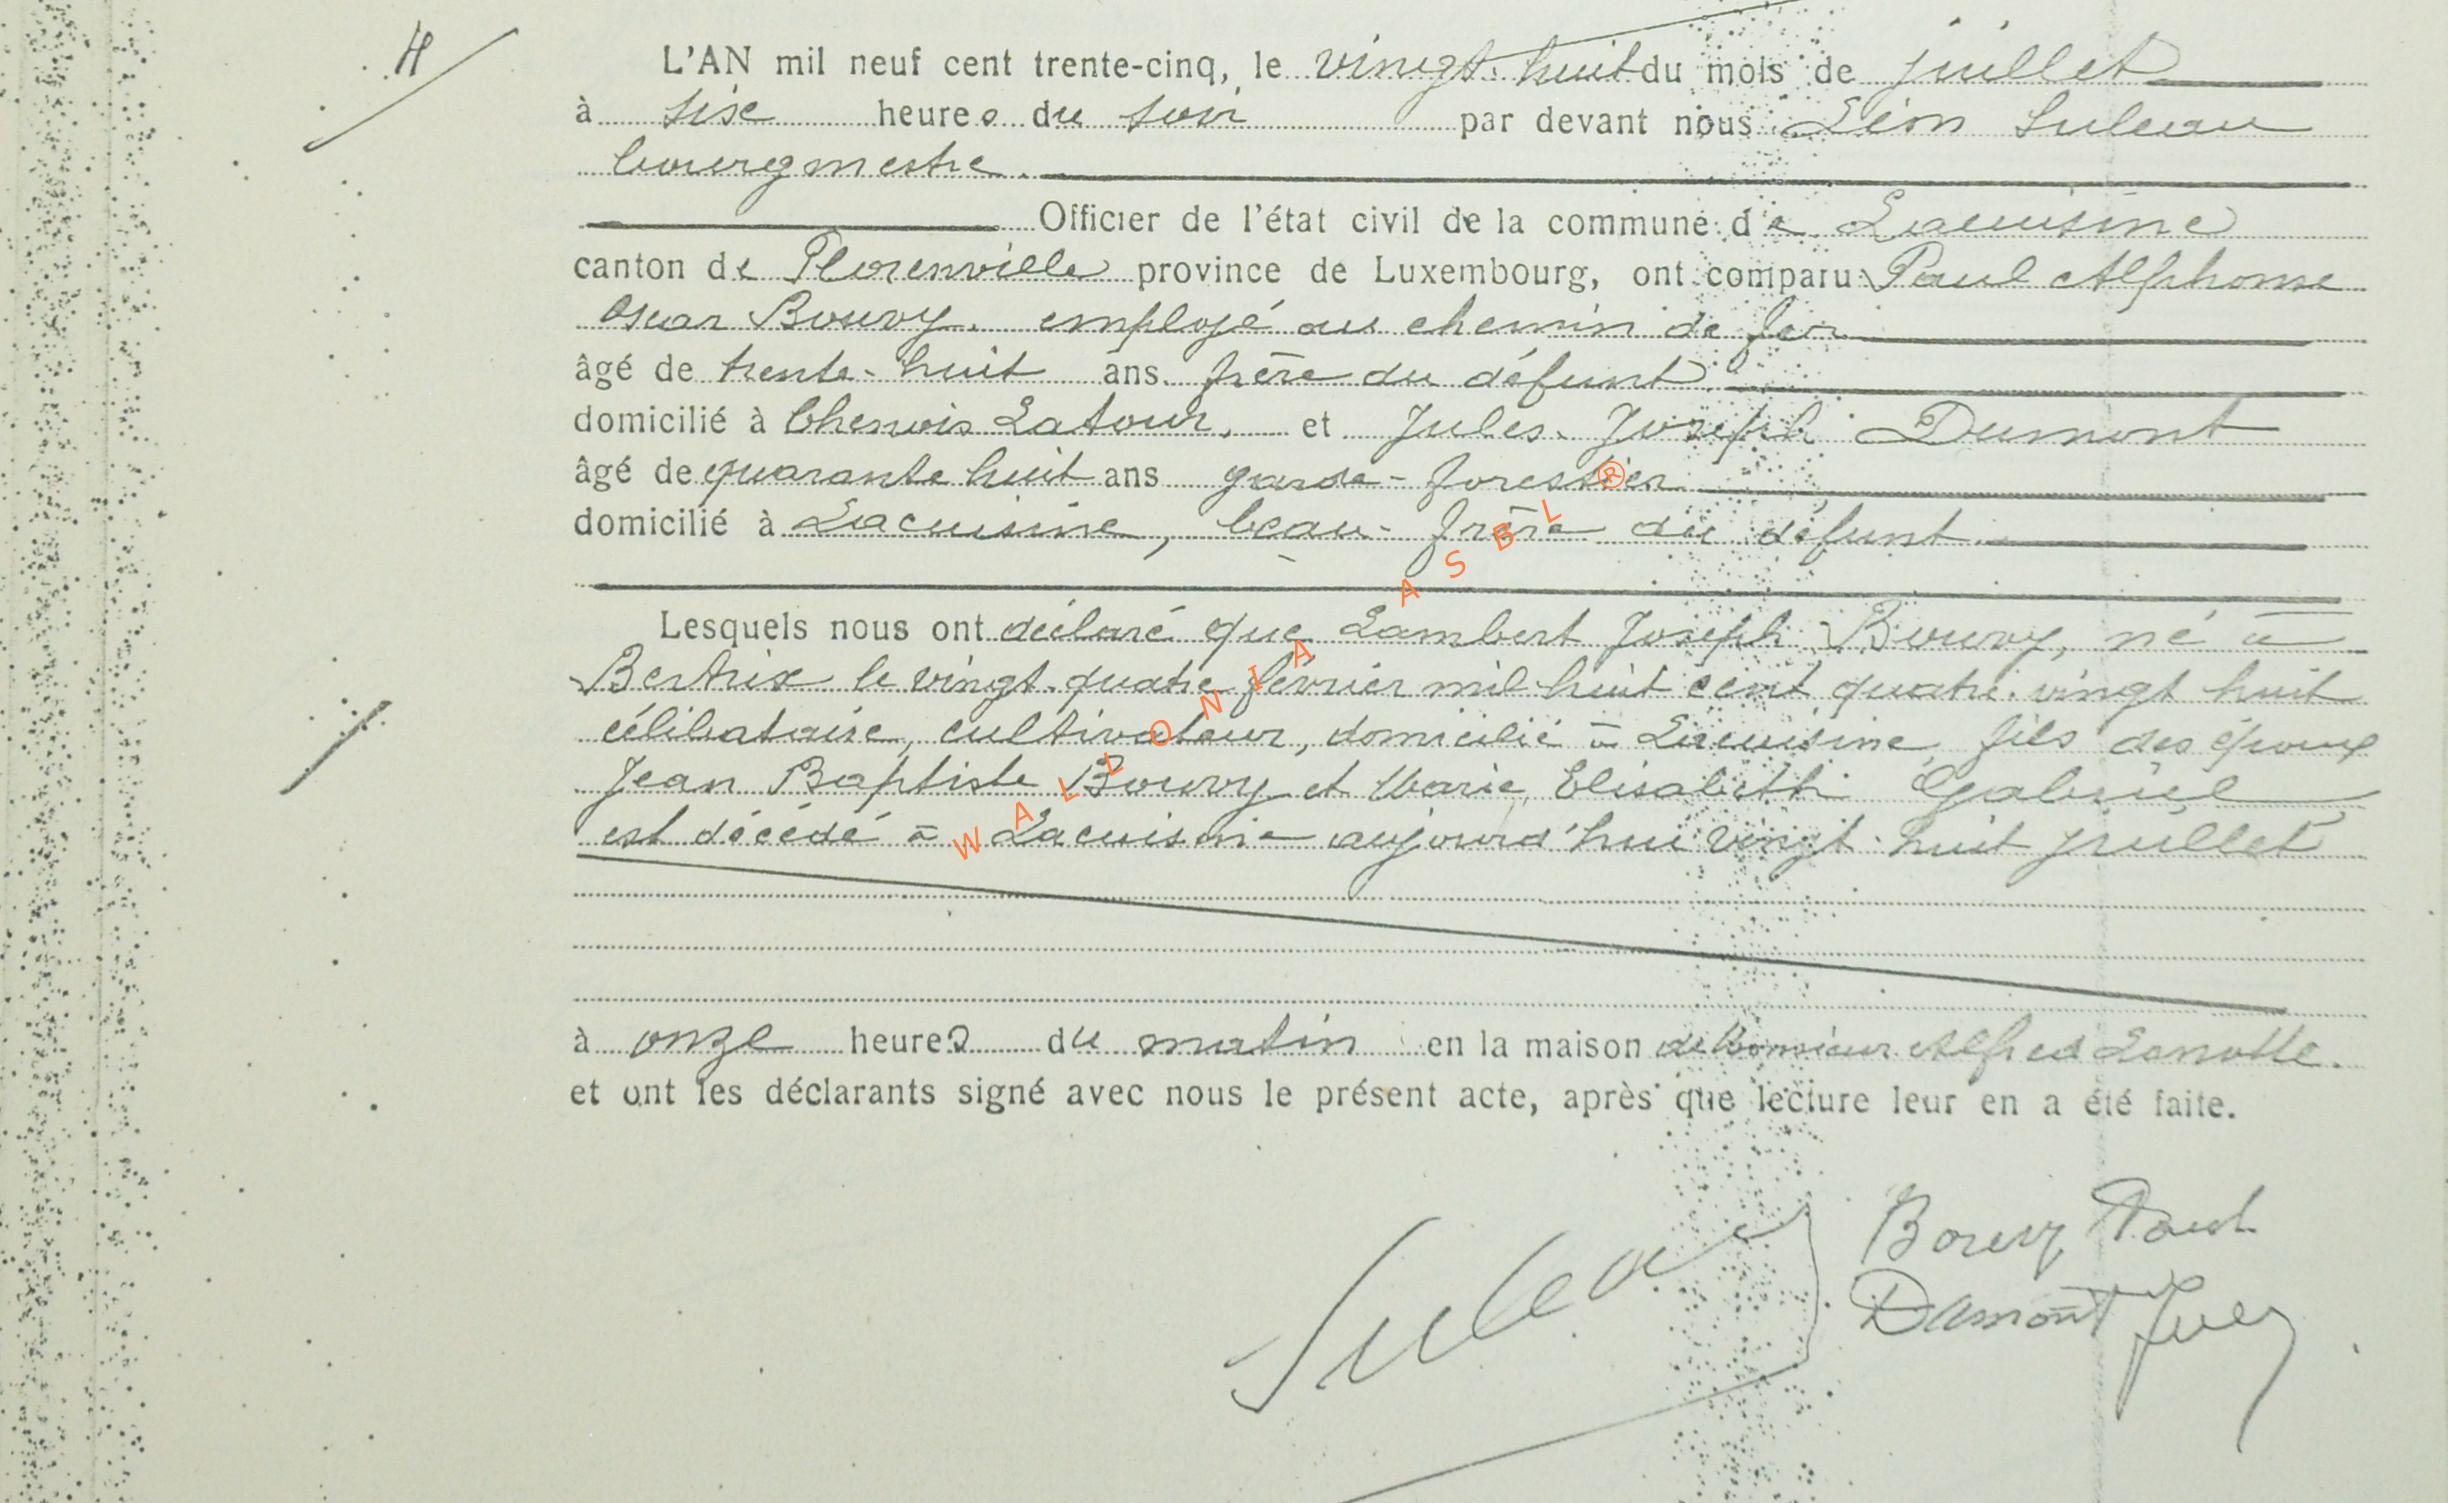 H
L'AN mil neuf cent trente-cinq, le vingt-huit du mois de juillet
à six heures du soir par devant nous Léon Suleau
bourgmestre.
Officier de l'état civil de la commune de Lacuisine
canton de Florenville province de Luxembourg, ont comparu Paul Alphonse
Oscar Bouvy, employé au chemin de fer
âgé de trente-huit ans frère du défunt
domicilié à Chenois Latour, et Jules Joseph Dumont
âgé de quarante huit ans garde-forestier
domicilié à Lacuisine, beau-frère du défunt.
Lesquels nous ont déclaré que Lambert Joseph Bouvy, né à
Bertrix le vingt-quatre février mil huit cent quatre-vingt huit
célibataire, cultivateur, domicilié à Lacuisine, fils des époux
Jean Baptiste Bouvy et Marie Elisabeth Gabriel
est décédé à Lacuisine aujourd'hui vingt-huit juillet
à onze heures du matin en la maison de Monsieur Alfred Lanotte.
et ont les déclarants signé avec nous le présent acte, après que lecture leur en a été faite.
Bouvy Paul
Suleau
Dumont Jules
WALLONIA ASBL ®